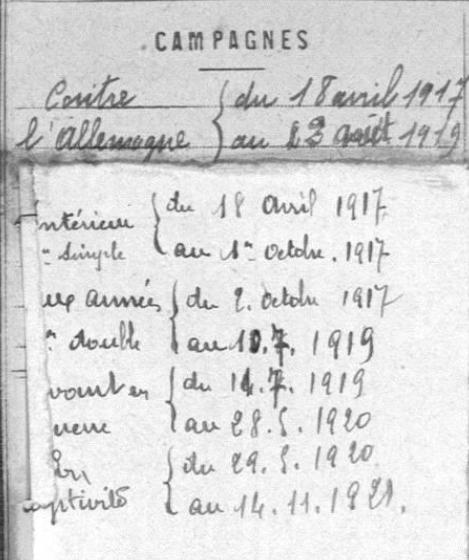 CAMPAGNES
Contre { du 18 avril 1917
l'Allemagne { au 23 août 1919
ntérieur { du 18 avril 1917
" simple { au 1er octobre. 1917
ux années { du 2. octobre 1917
" double { au 10.7. 1919
du 11.7. 1919
au 28.5. 1920
En { du 29.5. 1920
aptivité { au 14.11.1921.